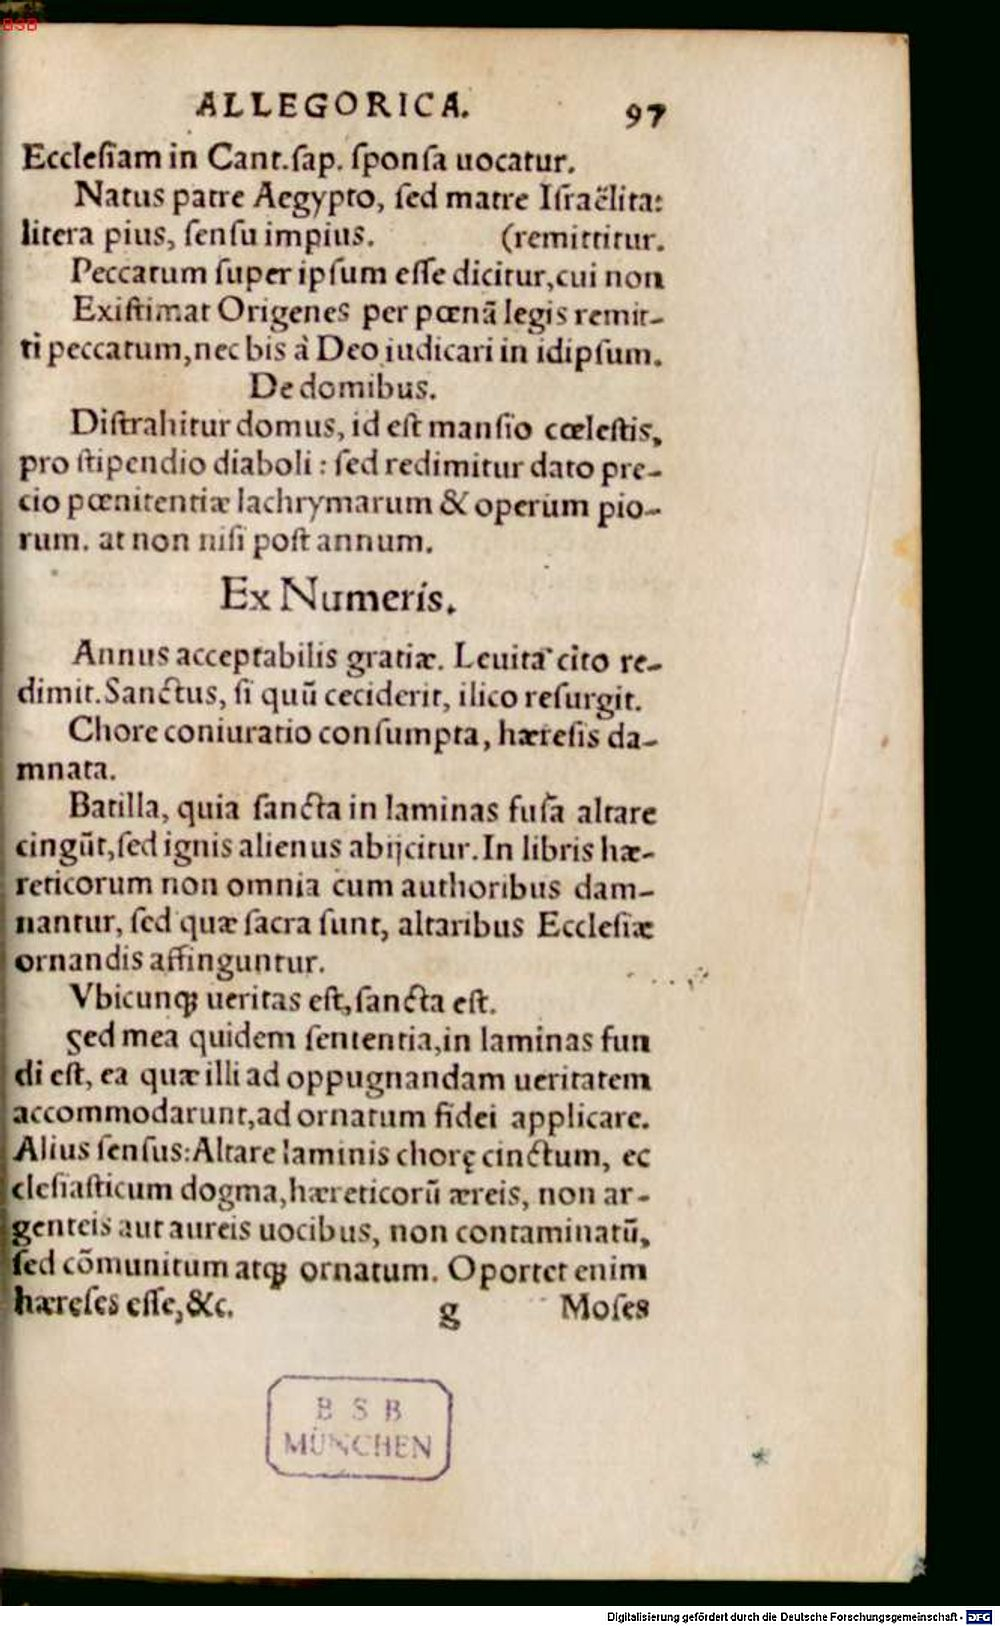 BSB
ALLEGORICA. 97
Eccleſiam in Cant.ſap. ſponſa uocatur.
Natus patre Aegypto, ſed matre Iſraëlita:
litera pius, ſenſu impius. (remittitur.
Peccatum ſuper ipſum eſſe dicitur,cui non
Exiſtimat Origenes per pœnã legis remit-
ti peccatum,nec bis à Deo iudicari in idipſum.
De domibus.
Diſtrahitur domus, id eſt manſio cœleſtis,
pro ſtipendio diaboli : ſed redimitur dato pre-
cio pœnitentiæ lachrymarum & operum pio-
rum. at non niſi poſt annum.
Ex Numeris.
Annus acceptabilis gratiæ. Leuita cito re-
dimit. Sanctus, ſi quũ ceciderit, ilico reſurgit.
Chore coniuratio conſumpta, hæreſis da-
mnata.
Batilla, quia ſancta in laminas fuſa altare
cingũt,ſed ignis alienus abijcitur. In libris hæ-
reticorum non omnia cum authoribus dam-
nantur, ſed quæ ſacra ſunt, altaribus Eccleſiæ
ornandis affinguntur.
Vbicunqꝫ ueritas eſt,ſancta eſt.
Sed mea quidem ſententia,in laminas fun
di eſt, ea quæ illi ad oppugnandam ueritatem
accommodarunt,ad ornatum fidei applicare.
Alius ſenſus:Altare laminis chorę cinctum, ec
cleſiaſticum dogma,hæreticorũ æreis, non ar-
genteis aut aureis uocibus, non contaminatũ,
ſed cõmunitum atqꝫ ornatum. Oportet enim
hæreſes eſſe,&c. g Moſes
BSB
MÜNCHEN
Digitalisierung gefördert durch die Deutsche Forschungsgemeinschaft - DFG